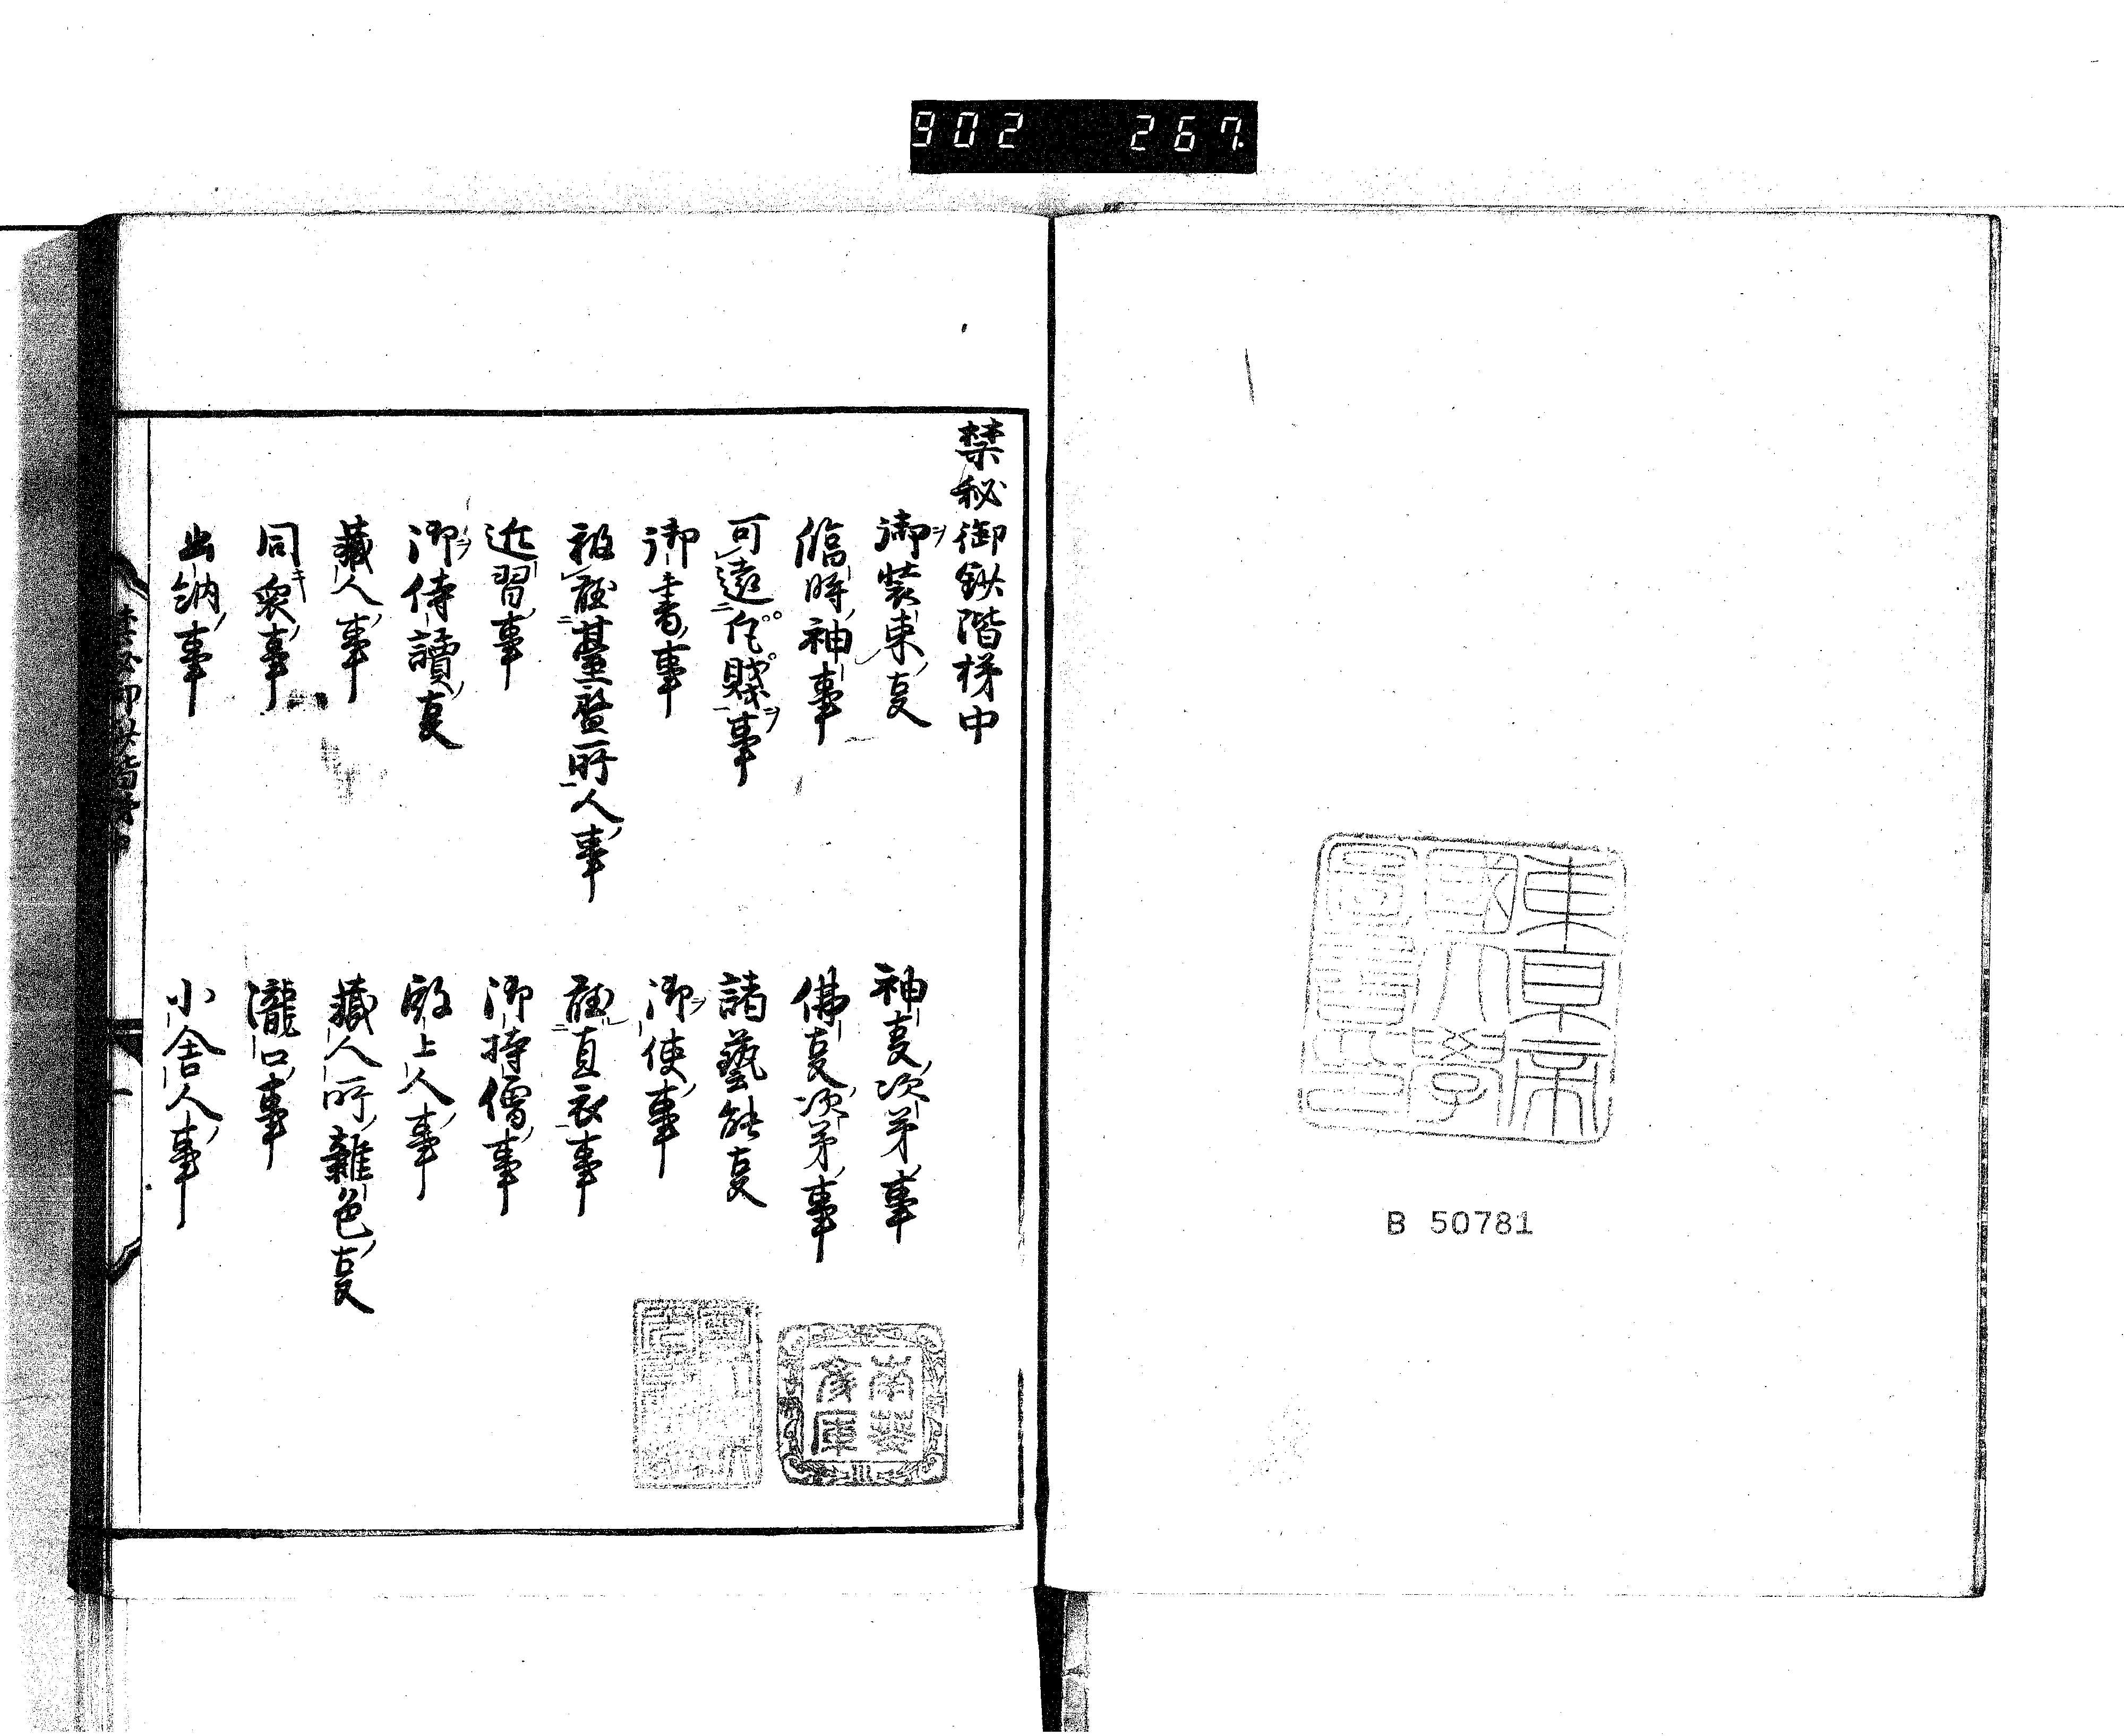 902 267
東京帝
國大學
圖書印
B 50781
禁秘御鈔階梯中
御装束叓
神叓次第事
臨時神事
佛叓次第事
可遠凡賤事
諸藝能叓
御書事
御使事
聴臺盤所人事
聴直衣事
近習事
御持僧事
御侍讀叓
殿上人事
藏人事
藏人所雜色叓
同衆事
瀧口事
出納事
小舎人事
南葵
文庫